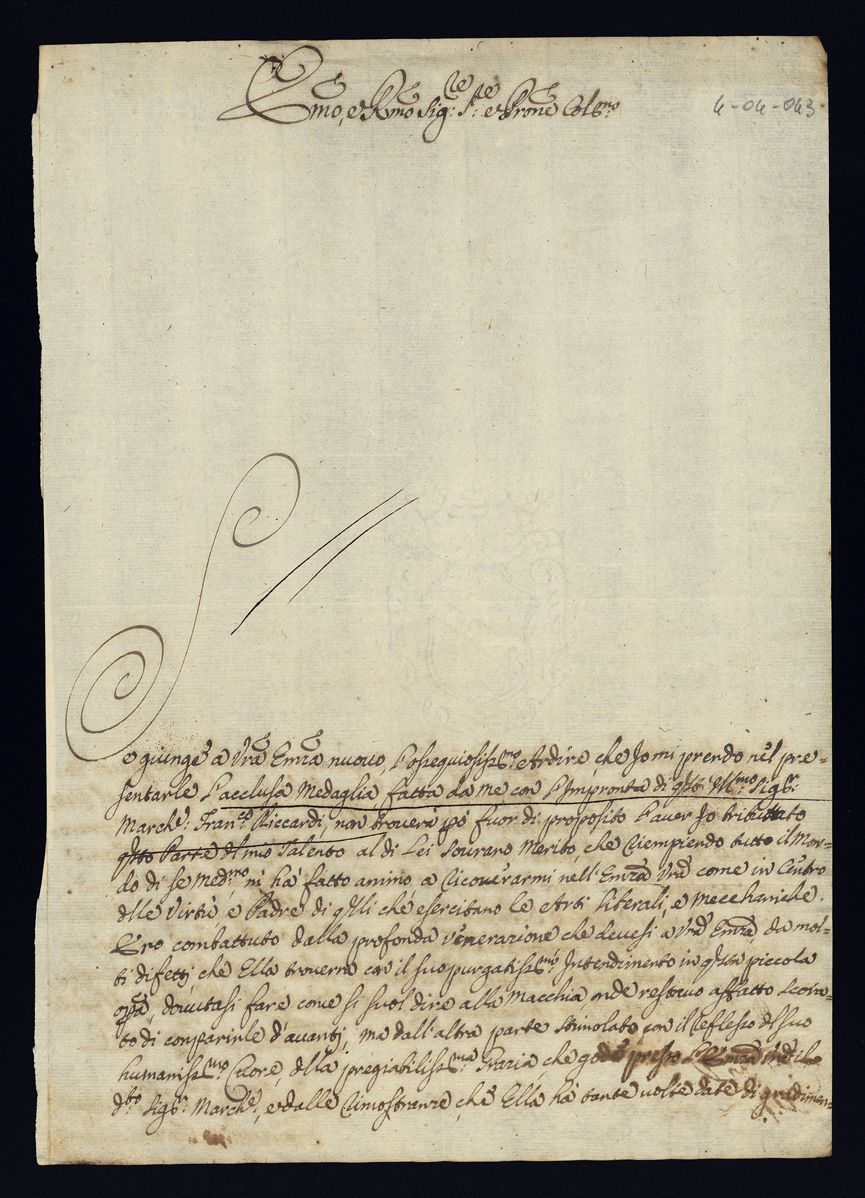 Emo, e Rmo Sig:re P:re e Prone Col:mo
4-04-043
Se giunge a Vra Emza nuovo, l'ossequiosiss:mo Ardire, che Io mi prendo nel pre=
sentarle l'acclusa Medaglia fatta da me con l'Impronta di qsto Ill:mo Sig:r
March:e Fran:co Riccardi, non troverà pò fuor di proposito l'aver Io tributtato
qsto Parte del mio Talento al di Lei Sourano Merito, che riempiendo tutto il Mon=
do di se med:mo mi hà fatto animo a ricoverarmi nell'Emza Vra come in Centro
dlle Virtù e Padre di qlli che esercitano le Arti liberali, e Mecchaniche.
Ero combattuto dalla profonda venerazione che devesi a Vra Emza, da mol=
ti difetti che Ella troverrà con il suo purgatiss:mo Intendimento in qsta piccola
opra, dovutasi fare come si suol dire alla Macchia onde restavo affatto scora=
to di comparirle d'avanti, ma dall'altra parte stimolato con il reflesso del suo
humaniss:mo Cuore, dlla pregiabiliss:ma Grazia che gode presso l'Emza Vra il
d:to Sig:r March:e, e dalle rimostranze che Ella hà tante volte date di gradimen=